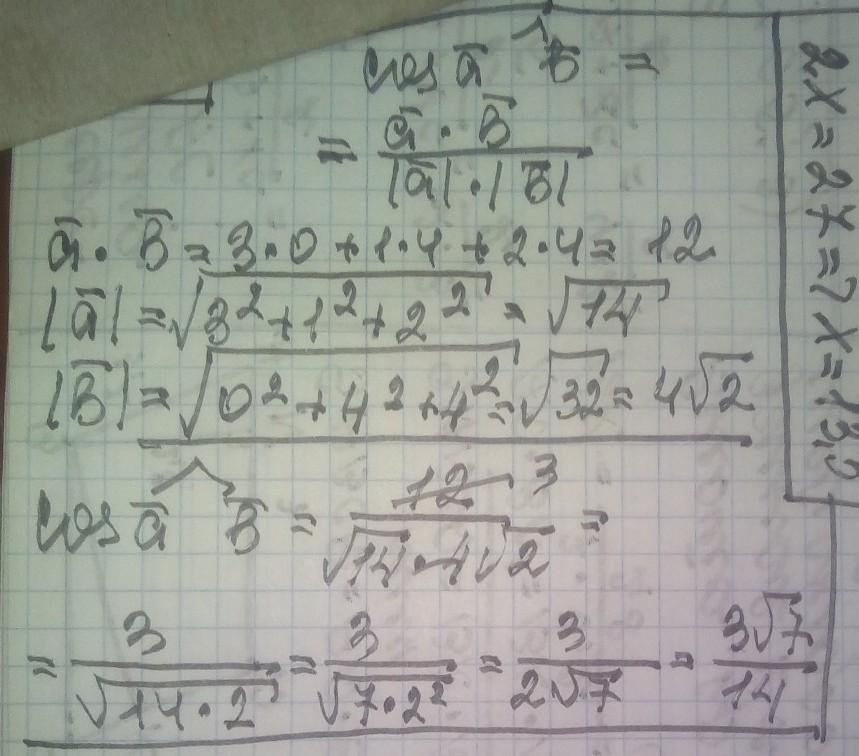 cos ā ^ B̄ =
= ā · B̄ / |ā| · |B̄|
ā · B̄ = 3·0 + 1·4 + 2·4 = 12
|ā| = √(3² + 1² + 2²) = √14
|B̄| = √(0² + 4² + 4²) = √32 = 4√2
cos ā ^ B̄ = 12 3 / √14 · 4√2 =
= 3 / √(14·2) = 3 / √(7·2²) = 3 / 2√7 = 3√7 / 14
2x = 27 => x = 13,